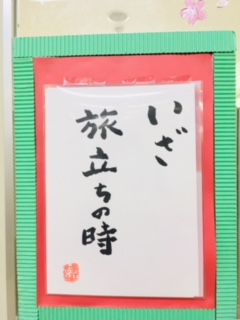 いざ
旅立ちの時